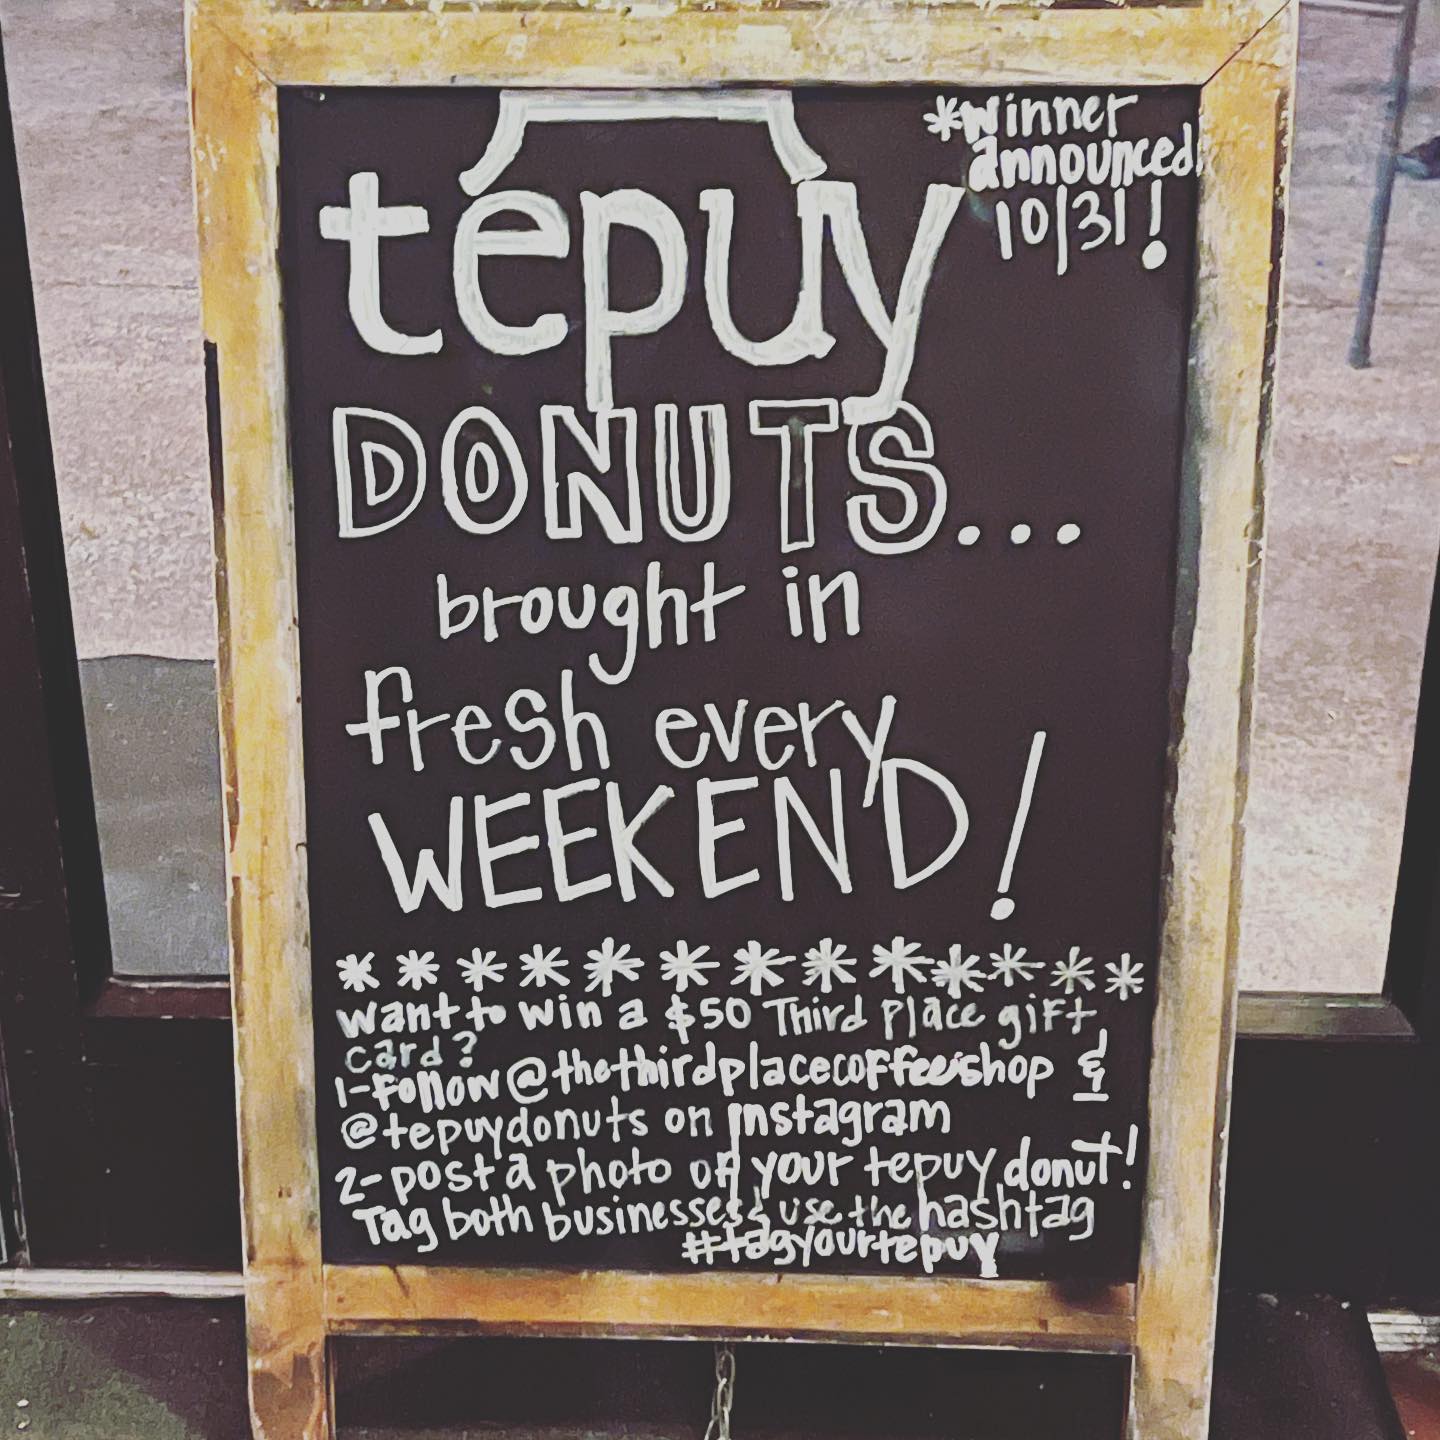 *winner
announced
10/31!
tepuy
DONUTS...
brought in
fresh every
WEEKEND!
*************
want to win a $50 Third Place gift
card?
1-Follow @thethirdplacecoffeeshop &
@tepuydonuts on Instagram
2-post a photo of your tepuy donut!
Tag both businesses & use the hashtag
#tagyourtepuy